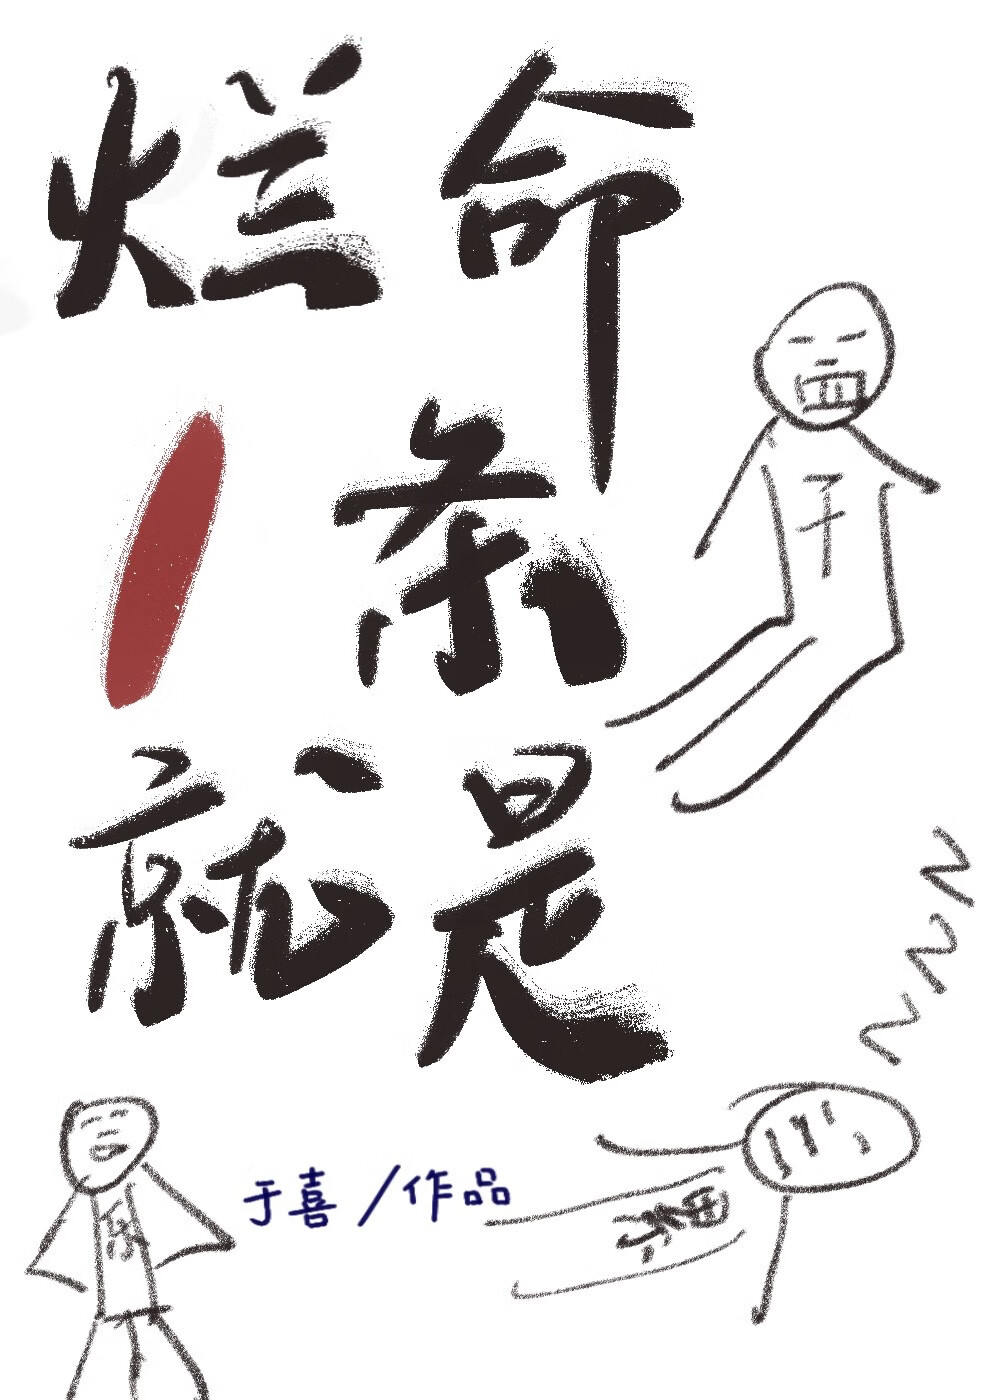 烂命
1条
就是
于
乐
于喜/作品